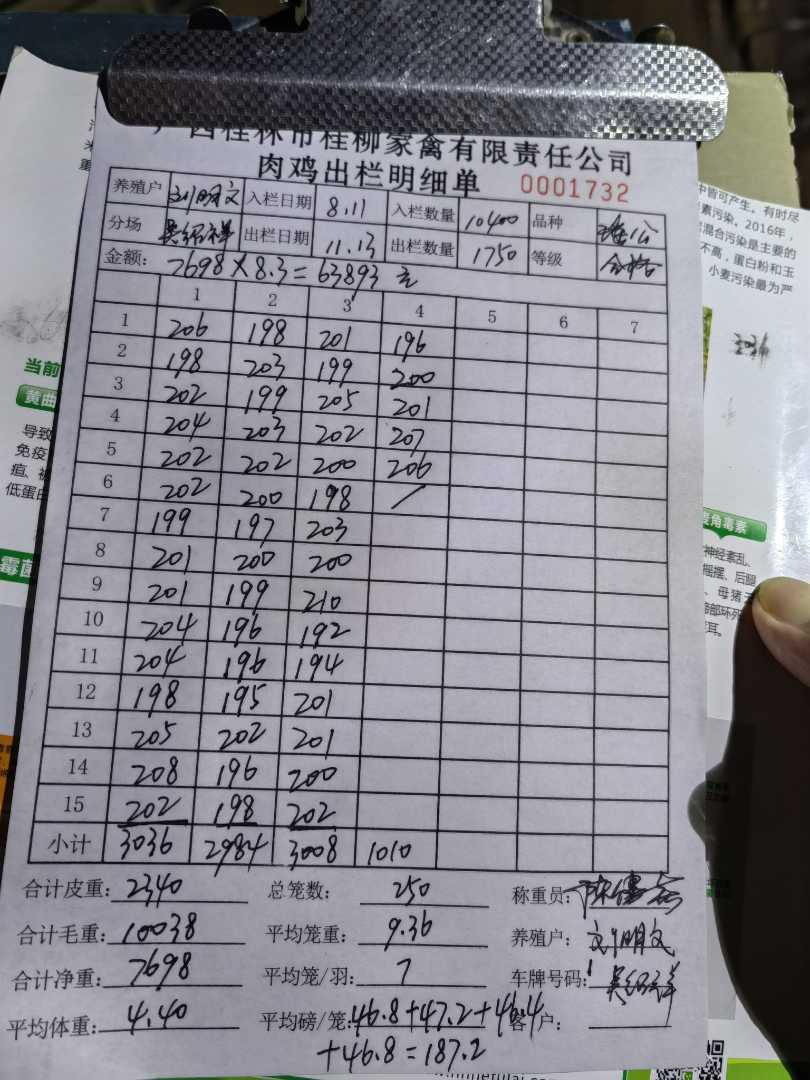 广西桂林市桂柳家禽有限责任公司
肉鸡出栏明细单 0001732
养殖户 刘明文 入栏日期 8.11 入栏数量 10400 品种
分场 吴绍祥 出栏日期 11.13 出栏数量 1750 等级 合格
金额: 7698×8.3=63893元
1 2 3 4 5 6 7
1 206 198 201 196
2 198 203 199 200
3 202 199 205 201
4 204 203 202 207
5 202 202 200 206
6 202 200 198 /
7 199 197 203
8 201 200 200
9 201 199 210
10 204 196 192
11 204 196 194
12 198 195 201
13 205 202 201
14 208 196 200
15 202 198 202
小计 3036 2984 3008 1010
合计皮重: 2340 总笼数: 250 称重员:
合计毛重: 10038 平均笼重: 9.36 养殖户: 刘明文
合计净重: 7698 平均笼/羽: 7 车牌号码: 吴绍祥
平均体重: 4.40 平均磅/笼: 46.8+47.2+46.4 客户:
+46.8=187.2
中皆可产生。有时尽
素污染。2016年,
混合污染是主要的
不高,蛋白粉和玉
小麦污染最为严
当前
黄曲
导致
免疫
低蛋白
霉菌
麦角毒素
神经紊乱、
摇摆、后腿
母猪
部环死